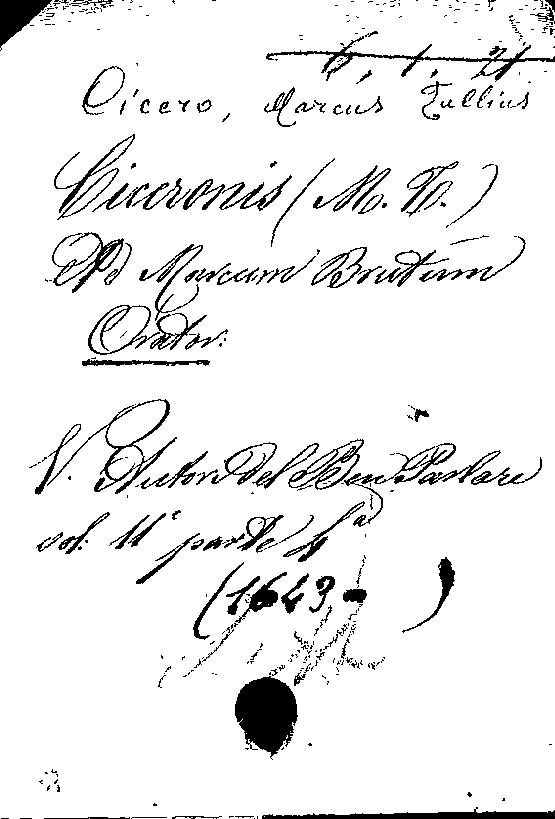 6, 1. 21
Cicero, Marcus Tullius
Ciceronis (M. T.)
Ad Marcum Brutum
Orator:
V. Autori del Ben Parlare
vol: 11° parte 4ª
(1643 - )